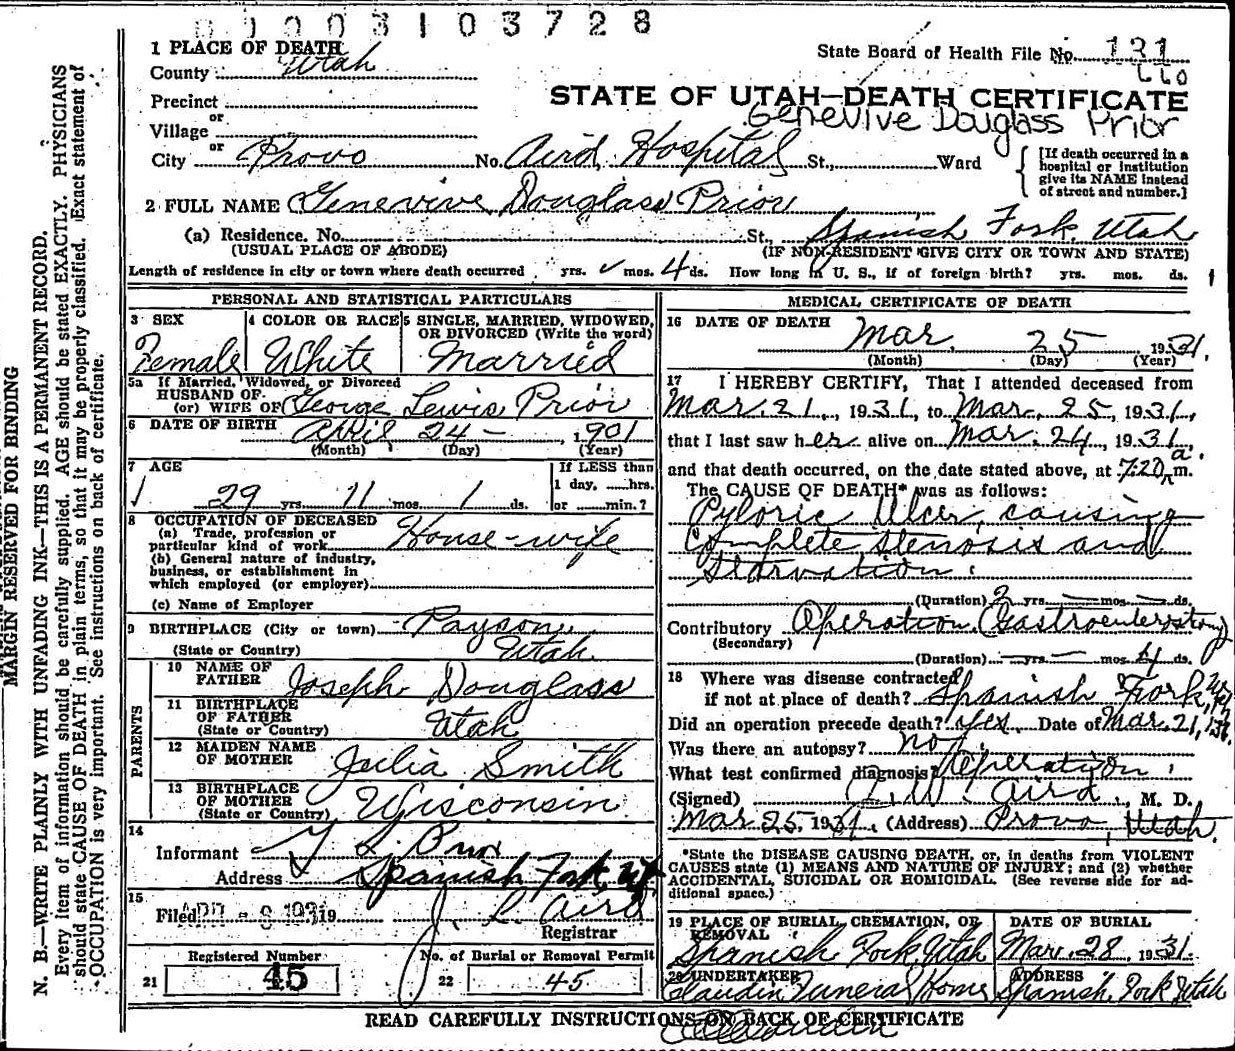 00003103728
1 PLACE OF DEATH
State Board of Health File No. 131
County Utah
660
Precinct
STATE OF UTAH—DEATH CERTIFICATE
or
Genevive Douglass Prior
Village
or
City Provo No. Aird Hospital St., Ward
[If death occurred in a hospital or institution give its NAME instead of street and number.]
2 FULL NAME Genevive Douglass Prior
(a) Residence. No. St., Spanish Fork, Utah
(USUAL PLACE OF ABODE) (IF NON-RESIDENT GIVE CITY OR TOWN AND STATE)
Length of residence in city or town where death occurred yrs. mos. 4 ds. How long in U. S., if of foreign birth? yrs. mos. ds.
PERSONAL AND STATISTICAL PARTICULARS
3 SEX 4 COLOR OR RACE 5 SINGLE, MARRIED, WIDOWED, OR DIVORCED (Write the word)
Female White Married
5a If Married, Widowed, or Divorced
HUSBAND OF
(or) WIFE OF George Lewis Prior
6 DATE OF BIRTH April 24 — , 1901
(Month) (Day) (Year)
7 AGE If LESS than
1 day, hrs.
29 yrs. 11 mos. 1 ds. or min.?
8 OCCUPATION OF DECEASED
(a) Trade, profession or
particular kind of work House-wife
(b) General nature of industry,
business, or establishment in
which employed (or employer)
(c) Name of Employer
9 BIRTHPLACE (City or town) Payson,
(State or Country) Utah
PARENTS
10 NAME OF
FATHER Joseph Douglass
11 BIRTHPLACE
OF FATHER
(State or Country) Utah
12 MAIDEN NAME
OF MOTHER Julia Smith
13 BIRTHPLACE
OF MOTHER
(State or Country) Wisconsin
14
Informant L. Prior
Address Spanish Fork, Ut
15
Filed APR - 9 1931 19 J. L. Aird
Registrar
Registered Number No. of Burial or Removal Permit
21 45 22 45
MEDICAL CERTIFICATE OF DEATH
16 DATE OF DEATH Mar. 25 1931.
(Month) (Day) (Year)
17 I HEREBY CERTIFY, That I attended deceased from
Mar. 21, 1931, to Mar. 25, 1931,
that I last saw her alive on Mar. 24, 1931,
and that death occurred, on the date stated above, at 7:20 a. m.
The CAUSE OF DEATH* was as follows:
Pyloric Ulcer, causing
complete stenosis and
starvation.
(Duration) 2 yrs. — mos. — ds.
Contributory Operation. (Gastroenterostomy
(Secondary)
(Duration) — yrs. — mos. 4 ds.
18 Where was disease contracted
if not at place of death? Spanish Fork, Ut
Did an operation precede death? yes Date of Mar. 21, 1931
Was there an autopsy? no.
What test confirmed diagnosis? Operation
(Signed) J. W. Aird, M. D.
Mar 25, 1931, (Address) Provo, Utah.
*State the DISEASE CAUSING DEATH, or, in deaths from VIOLENT
CAUSES state (1) MEANS AND NATURE OF INJURY; and (2) whether
ACCIDENTAL, SUICIDAL OR HOMICIDAL. (See reverse side for ad-
ditional space.)
19 PLACE OF BURIAL, CREMATION, OR REMOVAL DATE OF BURIAL
Spanish Fork, Utah Mar. 28 1931.
20 UNDERTAKER ADDRESS
Claudin Funeral Home Spanish Fork Utah
READ CAREFULLY INSTRUCTIONS ON BACK OF CERTIFICATE
MARGIN RESERVED FOR BINDING
N. B.—WRITE PLAINLY WITH UNFADING INK—THIS IS A PERMANENT RECORD.
Every item of information should be carefully supplied. AGE should be stated EXACTLY. PHYSICIANS
should state CAUSE OF DEATH in plain terms, so that it may be properly classified. Exact statement of
OCCUPATION is very important. See instructions on back of certificate.